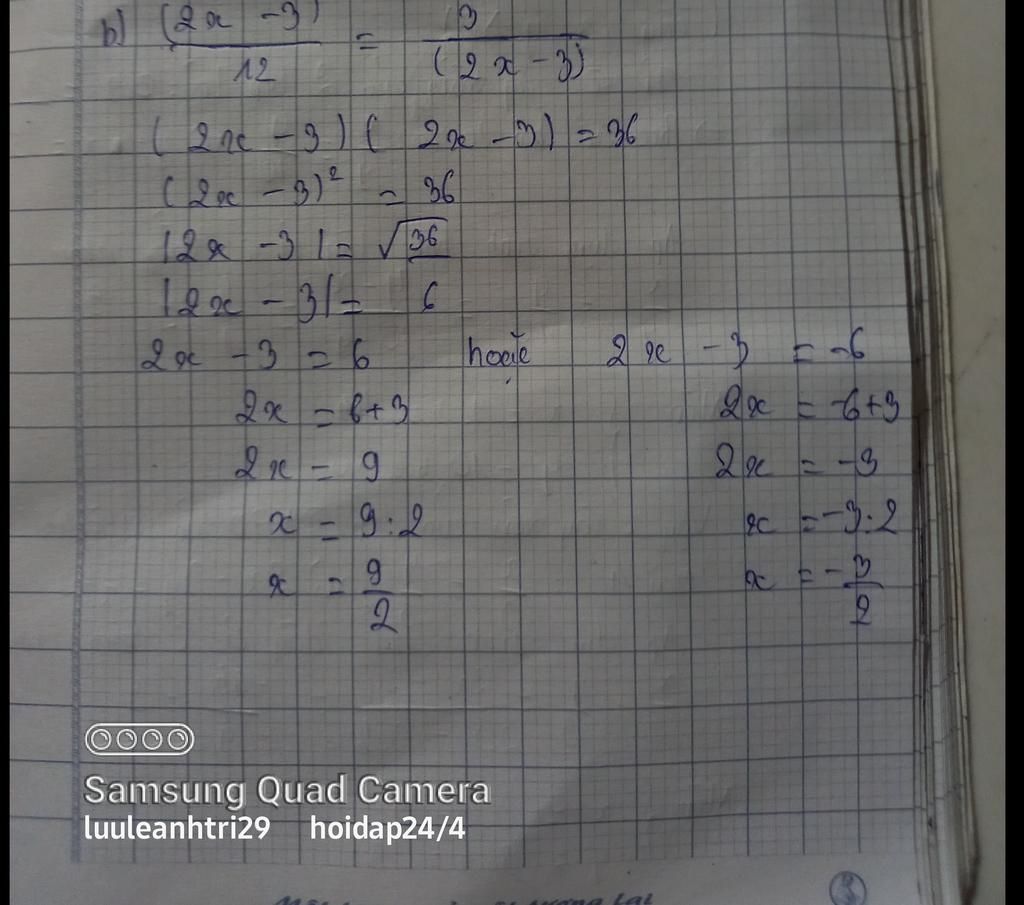 b) (2x - 3) / 12 = 3 / (2x - 3)
(2x - 3)(2x - 3) = 36
(2x - 3)² = 36
|2x - 3| = √36
|2x - 3| = 6
2x - 3 = 6 hoặc 2x - 3 = -6
2x = 6+3 2x = -6+3
2x = 9 2x = -3
x = 9:2 x = -3:2
x = 9/2 x = -3/2
Samsung Quad Camera
luuleanhtri29 hoidap24/4